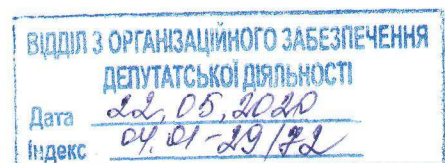 ВІДДІЛ З ОРГАНІЗАЦІЙНОГО ЗАБЕЗПЕЧЕННЯ
ДЕПУТАТСЬКОЇ ДІЯЛЬНОСТІ
Дата 22.05.2020
Індекс 04.01-29/72